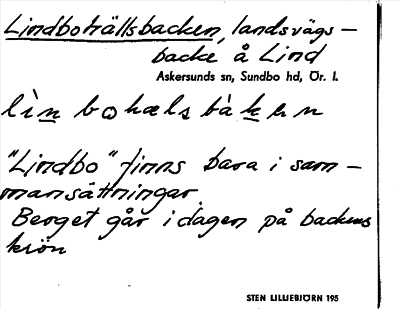 Lindbohällsbacken, landsvägs-
backe å Lind
Askersunds sn, Sundbo hd, Ör. l.
"Lindbo" finns bara i sam-
mansättningar
Berget går i dagen på backens
krön
STEN LILLIEBJÖRN 195